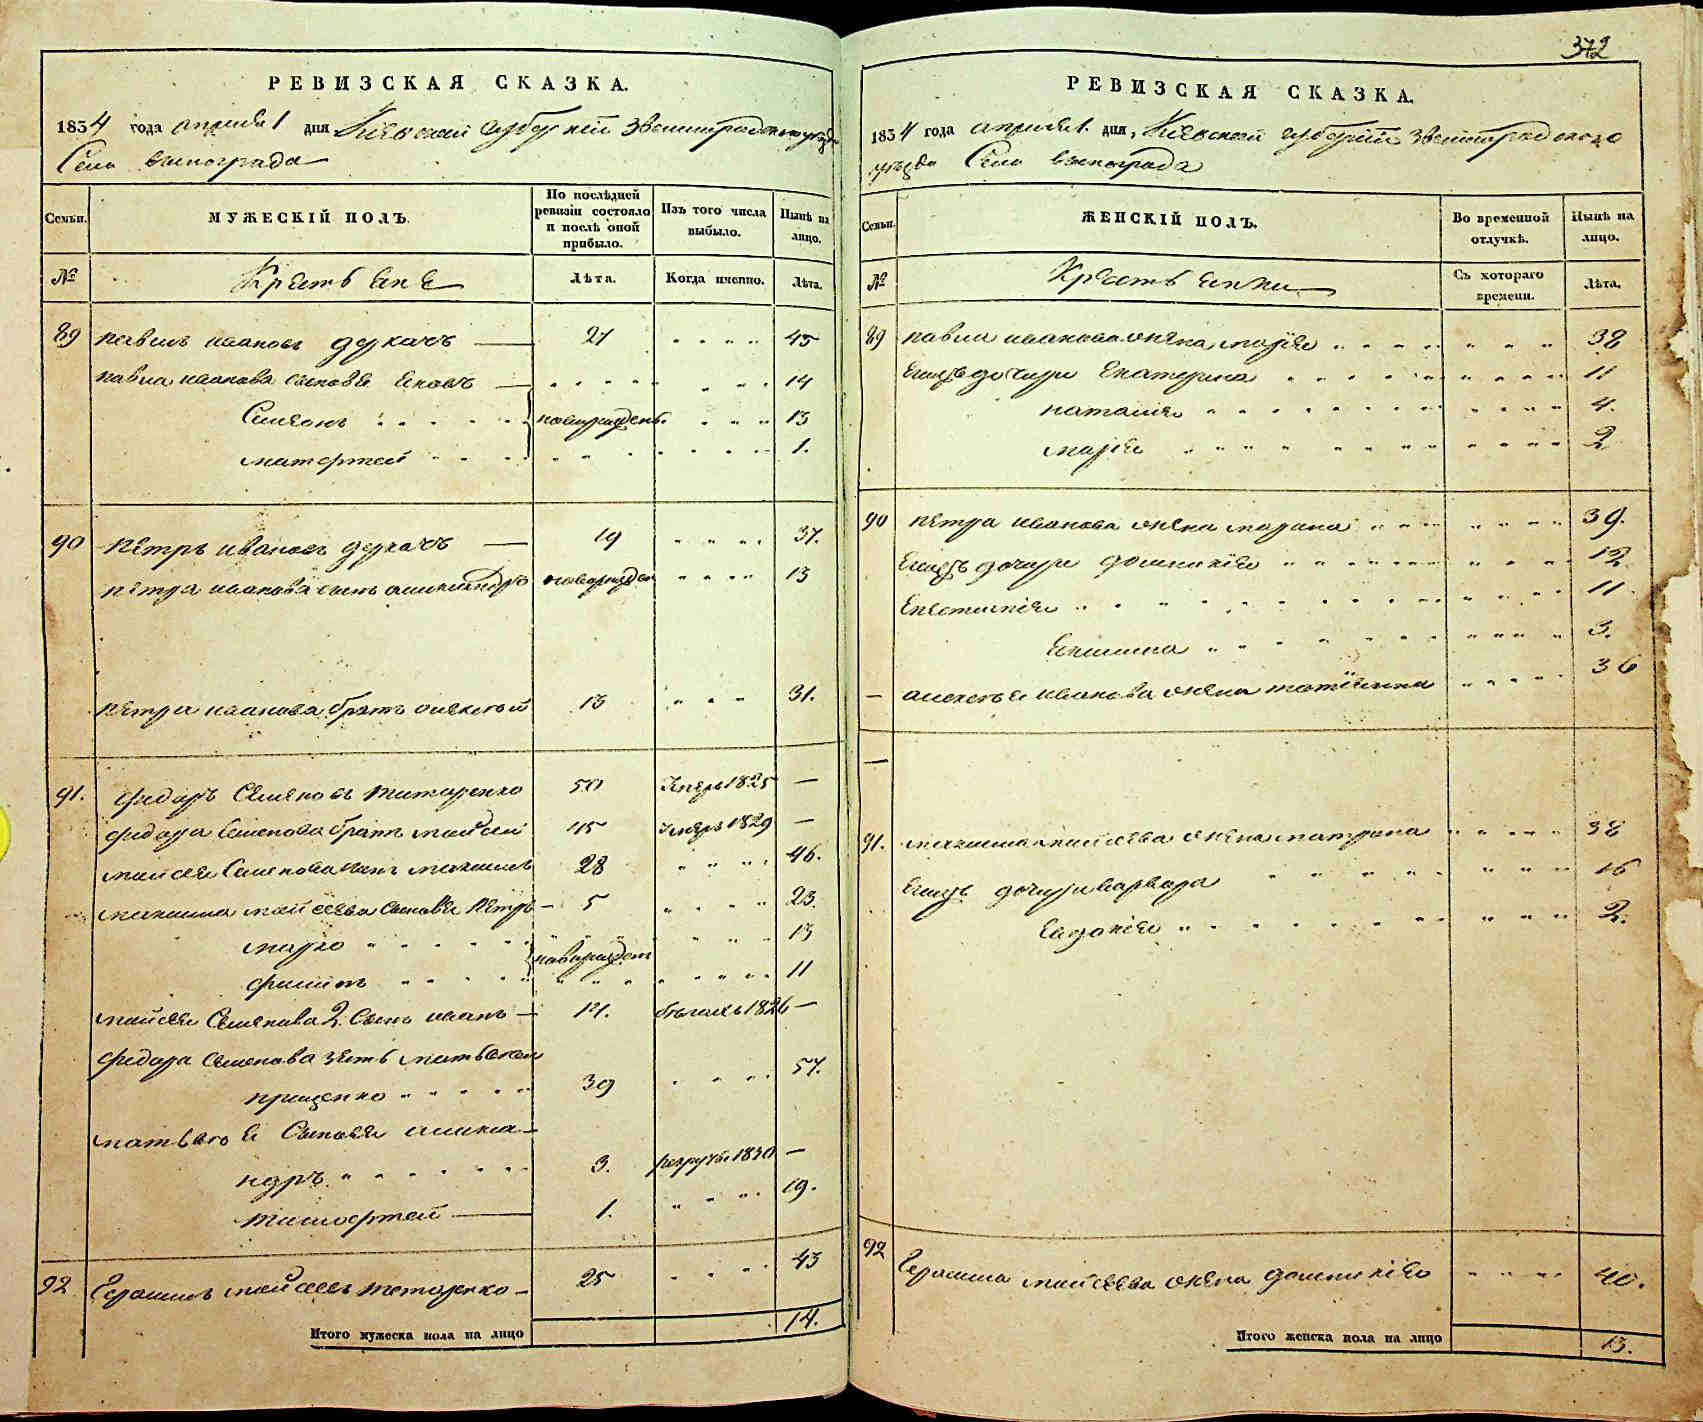 372
РЕВИЗСКАЯ СКАЗКА.
1834 года апреля 1 дня Киевской губерний Звенигородского уезда
Села винограда
Семьи. МУЖЕСКІЙ ПОЛЪ. По послѣдней ревизіи состояло и послѣ оной прибыло. Изъ того числа выбыло. Нынѣ на лицо.
№ Крестьяне Лѣта. Когда именно. Лѣта.
89 павилъ иванов деркачъ 27 45
павла иванова сыновя 14
Семенъ новорожден. 13
матофтей 1.
90 петръ ивановъ деркачъ 19 37.
петра иванова сынъ александро новорожден 13
петра иванова братъ алексей 13 31.
91. федоръ Семеновъ титаренко 50 умеръ 1825 —
федора Семенова братъ мойсей 45 умеръ 1829 —
мойсея Семенова сынъ максимъ 28 46.
максима мойсеева Сыновя Петръ 5 23.
марко новорожден 13
филипъ 11
мойсея Семенова 2 Сынъ иванъ 14. бежалъ 1826 —
федора Семенова зять матвей
прищенко 39 57.
матвея Сыновя алекса-
ндръ 3. рекруты 1830 —
тимофтей 1. 19.
92 Герасимъ мойсеевъ титаренко 25 43
Итого мужеска пола на лицо 14.
РЕВИЗСКАЯ СКАЗКА.
1834 года апреля 1. дня, Киевской губерний Звенигородского
уезда Села винограда
Семьи. ЖЕНСКІЙ ПОЛЪ. Во временной отлучкѣ. Нынѣ на лицо.
№ Крестьянки Съ котораго времени. Лѣта.
89 павла иванова жена марія 38
Егожъ дочери Екатерина 11
наталия 4.
марія 2
90 петра иванова жена марина 39.
Егожъ дочери домникия 12
11
3.
— алексея иванова жена татіянна 36
—
91. максима мойсеева жена матрона 38
Егожъ дочери варвара 16
Евдокия 2.
92 Герасима мойсеева жена домникия 40.
Итого женска пола на лицо 13.